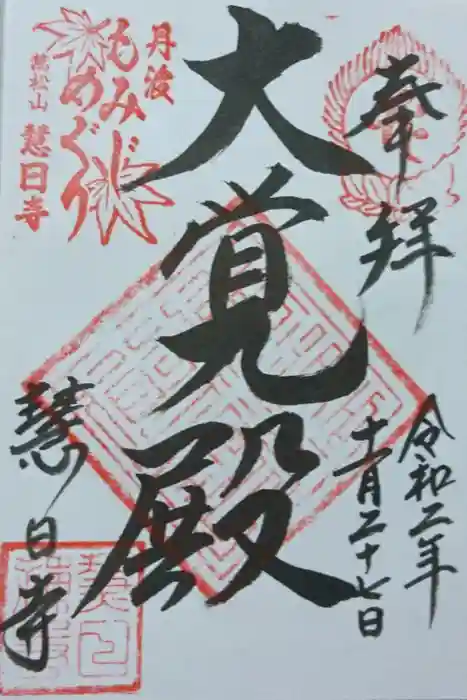 奉拝
令和二年
十一月二十七日
大覚殿
丹波
もみじめぐり
松山 慧日寺
慧日寺